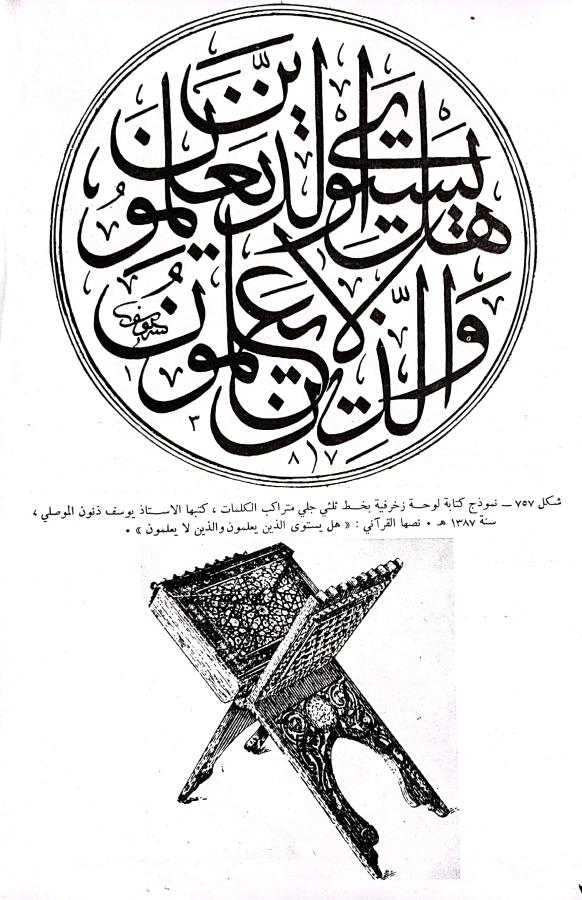 هل يستوى الذين يعلمون
والذين لا يعلمون
يوسف
١٣٨٧
شكل ٧٥٧ — نموذج كتابة لوحة زخرفية بخط ثلثي جلي متراكب الكلمات ، كتبها الاستاذ يوسف ذنون الموصلي ،
سنة ١٣٨٧ هـ • نصها القرآني : « هل يستوى الذين يعلمون والذين لا يعلمون » •